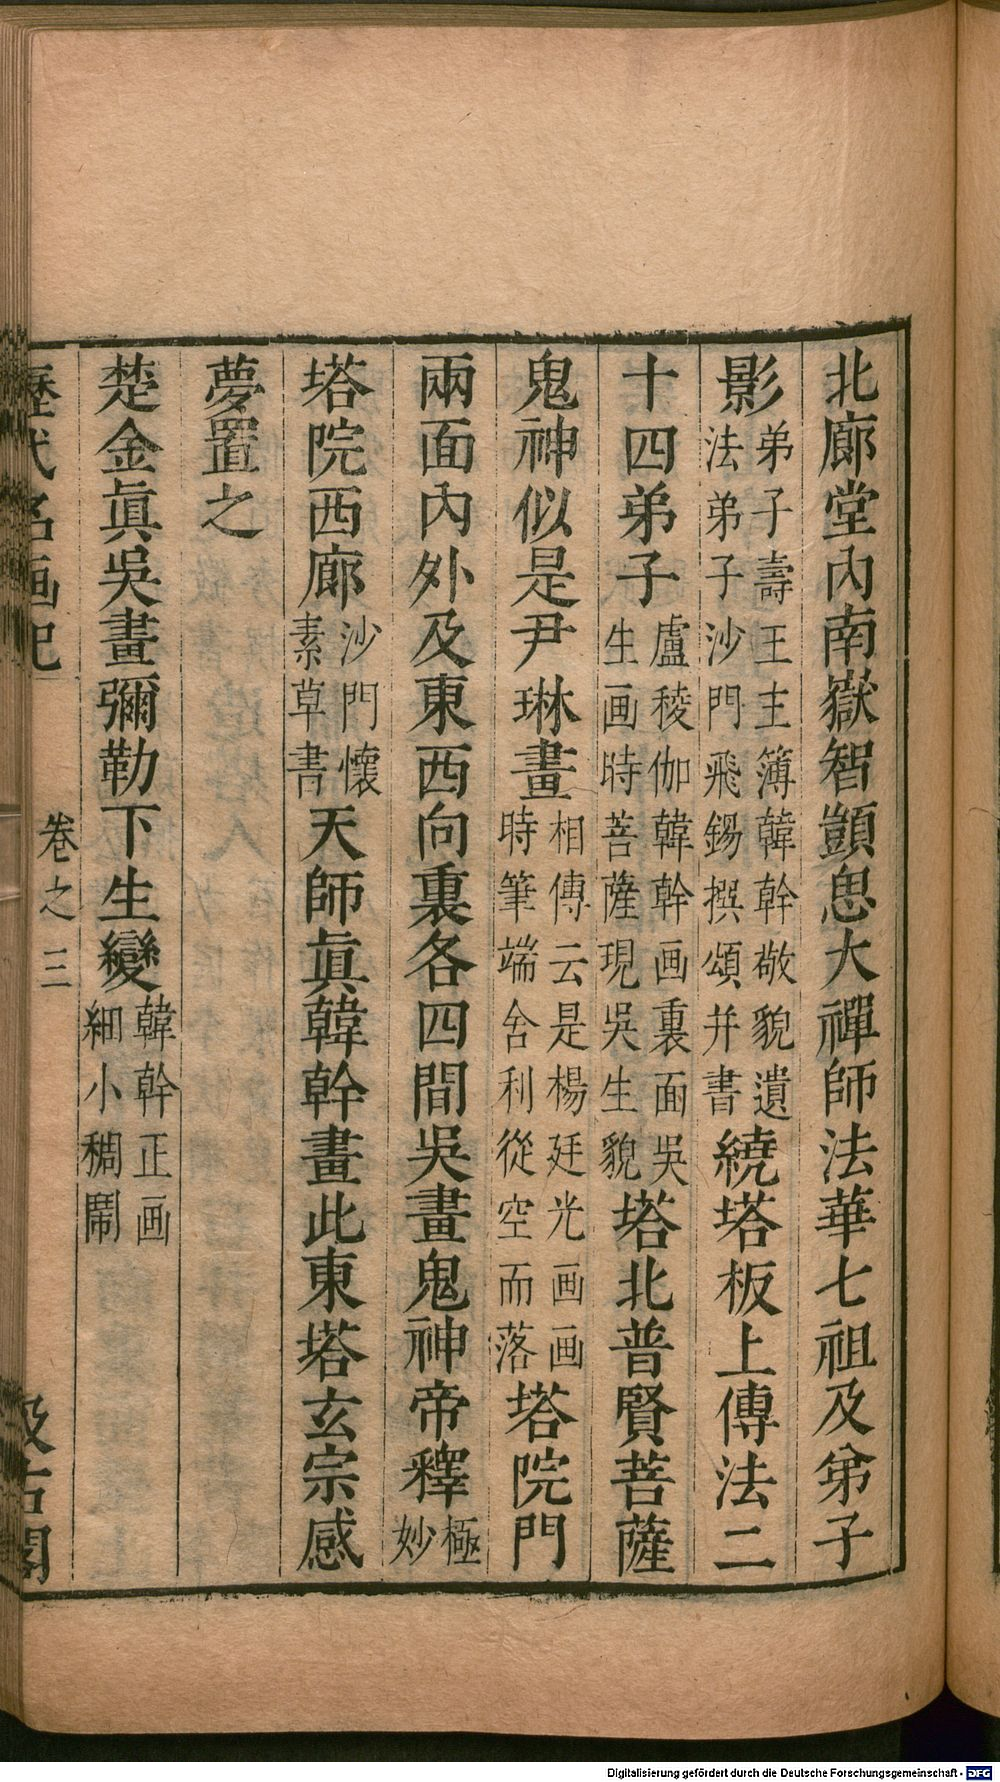 北廊堂內南嶽智顗思大禪師法華七祖及弟子
影弟子壽王主簿韓幹敬貌遺法弟子沙門飛錫撰頌并書繞塔板上傳法二
十四弟子盧稜伽韓幹画裏面吳生画時菩薩現吳生貌塔北普賢菩薩
鬼神似是尹琳畫相傳云是楊廷光画画時筆端舍利從空而落塔院門
兩面內外及東西向裏各四間吳畫鬼神帝釋極妙
塔院西廊沙門懷素草書天師眞韓幹畫此東塔玄宗感
夢置之
楚金眞吳畫彌勒下生變韓幹正画細小稠鬧
歷代名画記 卷之三 汲古閣
Digitalisierung gefördert durch die Deutsche Forschungsgemeinschaft - DFG